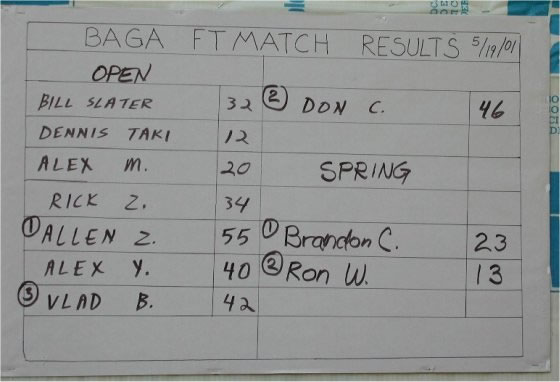 BAGA FT MATCH RESULTS 5/19/01
OPEN
BILL SLATER 32
DENNIS TAKI 12
ALEX M. 20
RICK Z. 34
① ALLEN Z. 55
ALEX Y. 40
③ VLAD B. 42
② DON C. 46
SPRING
① Brandon C. 23
② Ron W. 13